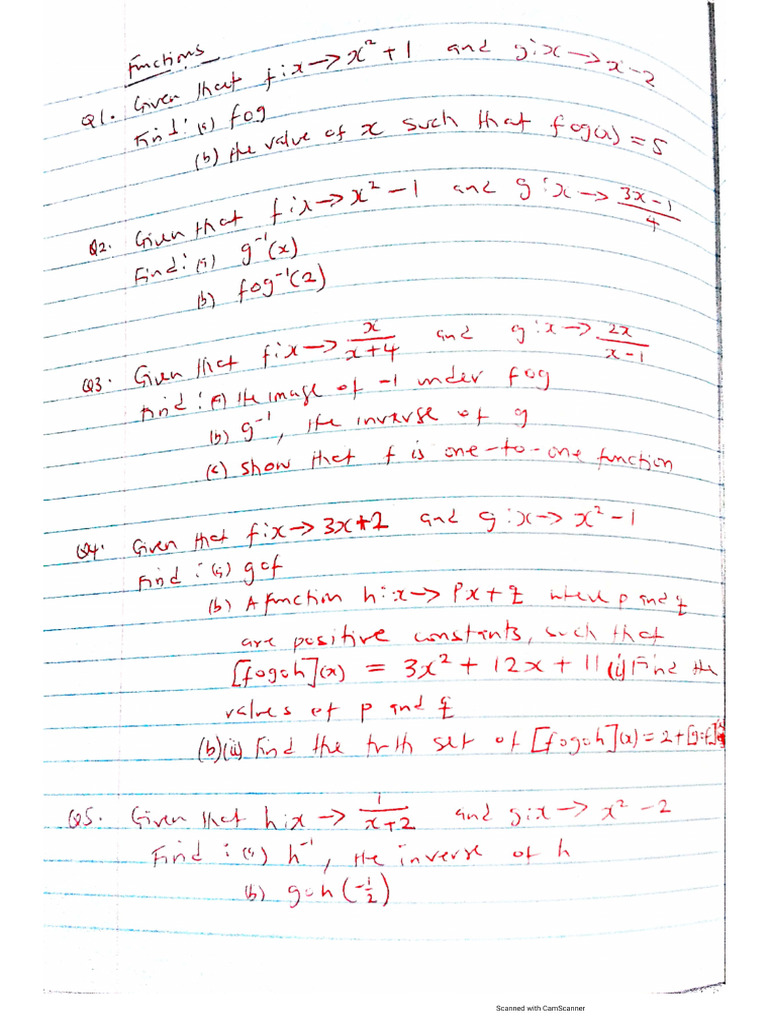 Functions
Q1. Given that f:x→x²+1 and g:x→x-2
Find: (a) fog
(b) the value of x such that fog(x) = 5
Q2. Given that f:x→x²-1 and g:x→(3x-1)/4
Find: (a) g⁻¹(x)
(b) fog⁻¹(2)
Q3. Given that f:x→x/(x+4) and g:x→2x/(x-1)
Find: (a) the image of -1 under fog
(b) g⁻¹, the inverse of g
(c) show that f is one-to-one function
Q4. Given that f:x→3x+2 and g:x→x²-1
Find: (a) gof
(b) A function h:x→Px+q where p and q
are positive constants, such that
[fogoh](x) = 3x²+12x+11 (i) Find the
values of p and q
(b)(ii) Find the truth set of [fogoh](x)=2+[gof]
Q5. Given that h:x→1/(x+2) and g:x→x²-2
Find: (a) h⁻¹, the inverse of h
(b) goh(-1/2)
Scanned with CamScanner